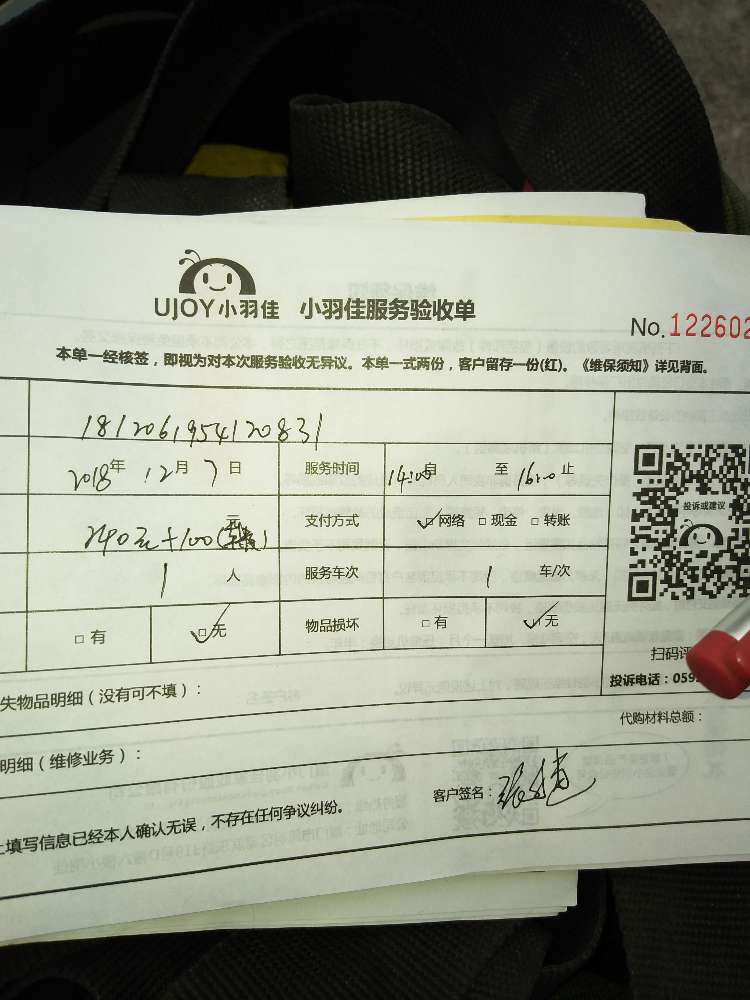 UJOY小羽佳 小羽佳服务验收单
No. 122602
本单一经核签，即视为对本次服务验收无异议。本单一式两份，客户留存一份(红)。《维保须知》详见背面。
1812061954120831
2018年 12月 7日 服务时间 14:00自 至 16:00止
投诉或建议
240元+100( 元 支付方式 ☑网络 □现金 □转账
1 人 服务车次 1 车/次
□有 ☑无 物品损坏 □有 ☑无
扫码评
失物品明细（没有可不填）：
投诉电话：059
代购材料总额：
明细（维修业务）：
客户签名：
上填写信息已经本人确认无误，不存在任何争议纠纷。